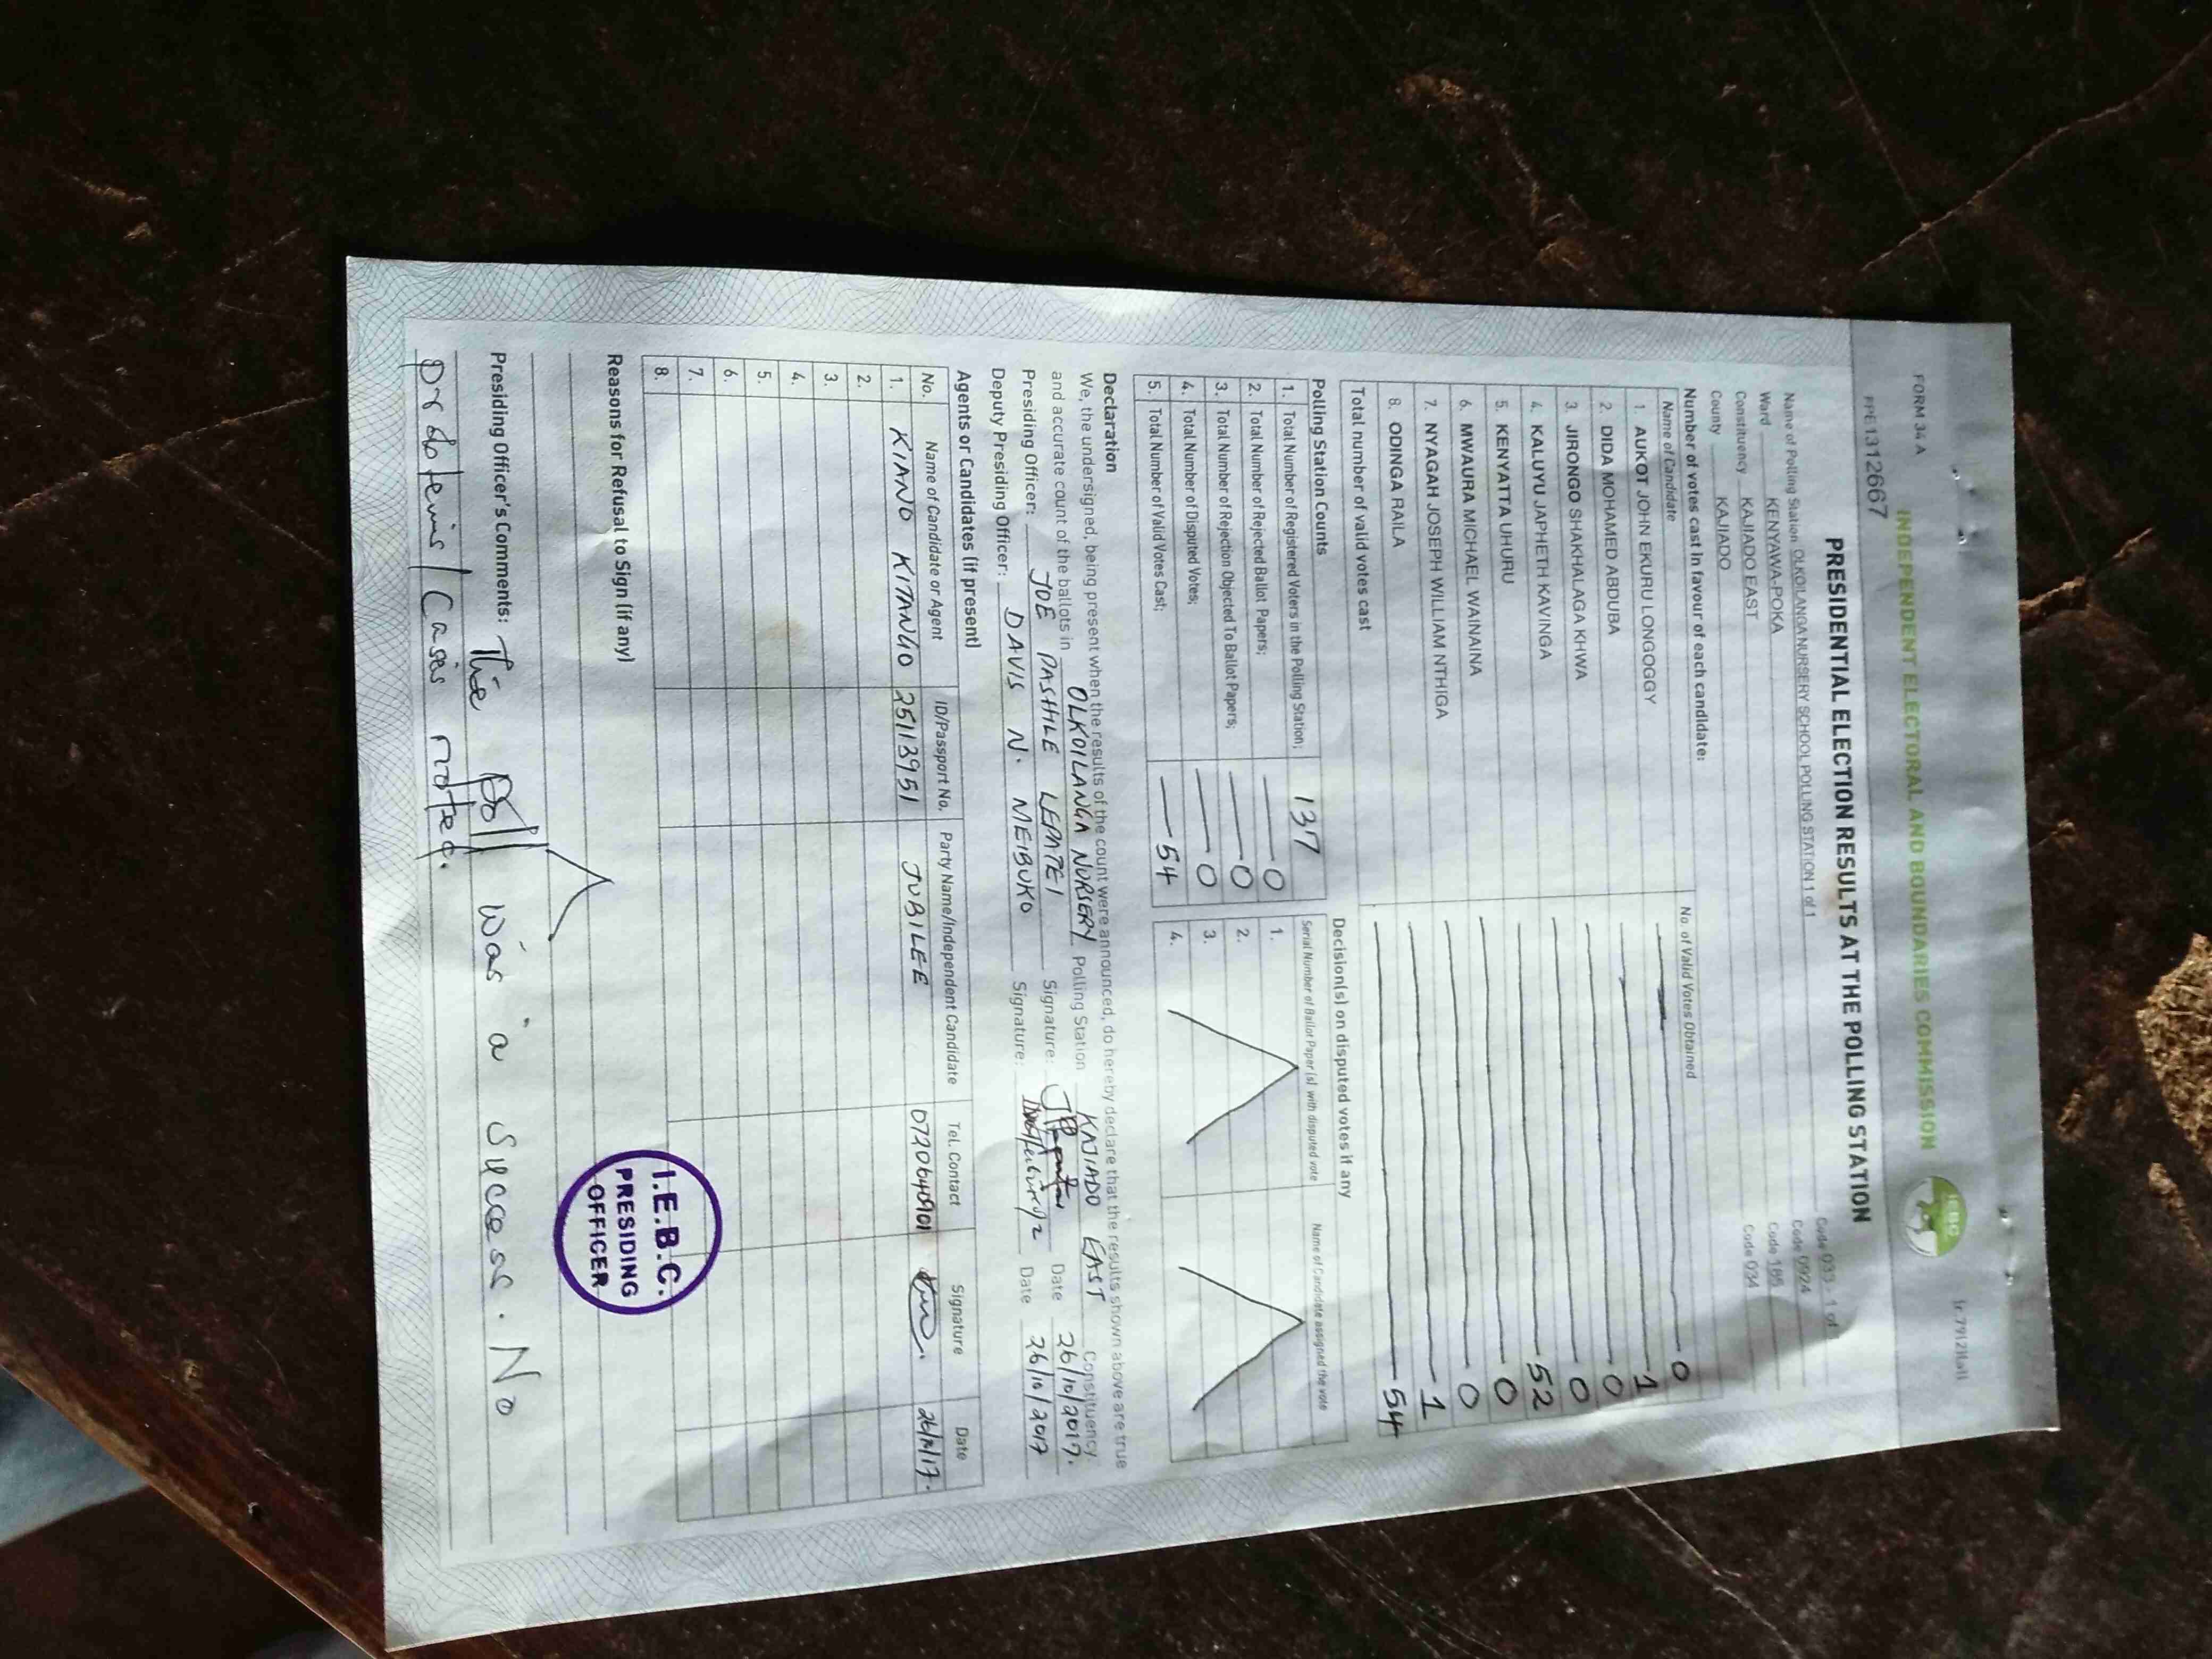 FORM 34 A
INDEPENDENT ELECTORAL AND BOUNDARIES COMMISSION
IEBC
PPE1312667
PRESIDENTIAL ELECTION RESULTS AT THE POLLING STATION
Name of Polling Station OLKOILANGA NURSERY SCHOOL POLLING STATION 1 of 1 Code 033 - 1 of
Ward KENYAWA-POKA Code 0924
Constituency KAJIADO EAST Code 185
County KAJIADO Code 034
Number of votes cast in favour of each candidate:
Name of Candidate No. of Valid Votes Obtained
1. AUKOT JOHN EKURU LONGOGGY 0
2. DIDA MOHAMED ABDUBA 1
3. JIRONGO SHAKHALAGA KHWA 0
4. KALUYU JAPHETH KAVINGA 0
5. KENYATTA UHURU 52
6. MWAURA MICHAEL WAINAINA 0
7. NYAGAH JOSEPH WILLIAM NTHIGA 0
8. ODINGA RAILA 1
Total number of valid votes cast 54
Polling Station Counts
1. Total Number of Registered Voters in the Polling Station; 137
2. Total Number of Rejected Ballot Papers; 0
3. Total Number of Rejection Objected To Ballot Papers; 0
4. Total Number of Disputed Votes; 0
5. Total Number of Valid Votes Cast; 54
Decision(s) on disputed votes if any
Serial Number of Ballot Paper (s) with disputed vote Name of Candidate assigned the vote
1.
2.
3.
4.
Declaration
We, the undersigned, being present when the results of the count were announced, do hereby declare that the results shown above are true
and accurate count of the ballots in OLKOILANGA NURSERY Polling Station KAJIADO EAST Constituency
Presiding Officer: JOE PASHILE LEPATEI Signature: Date 26/10/2017.
Deputy Presiding Officer: DAVIS N. MEIBUKO Signature: Date 26/10/2017
Agents or Candidates (if present)
No. Name of Candidate or Agent ID/Passport No. Party Name/Independent Candidate Tel. Contact Signature Date
1. KIANO KITANGO 25113951 JUBILEE 0720640901 26/10/17.
2.
3.
4.
5.
6.
7.
8.
Reasons for Refusal to Sign (if any)
I.E.B.C.
PRESIDING
OFFICER
Presiding Officer's Comments: The Poll was a success. No
problems/Cases noted.